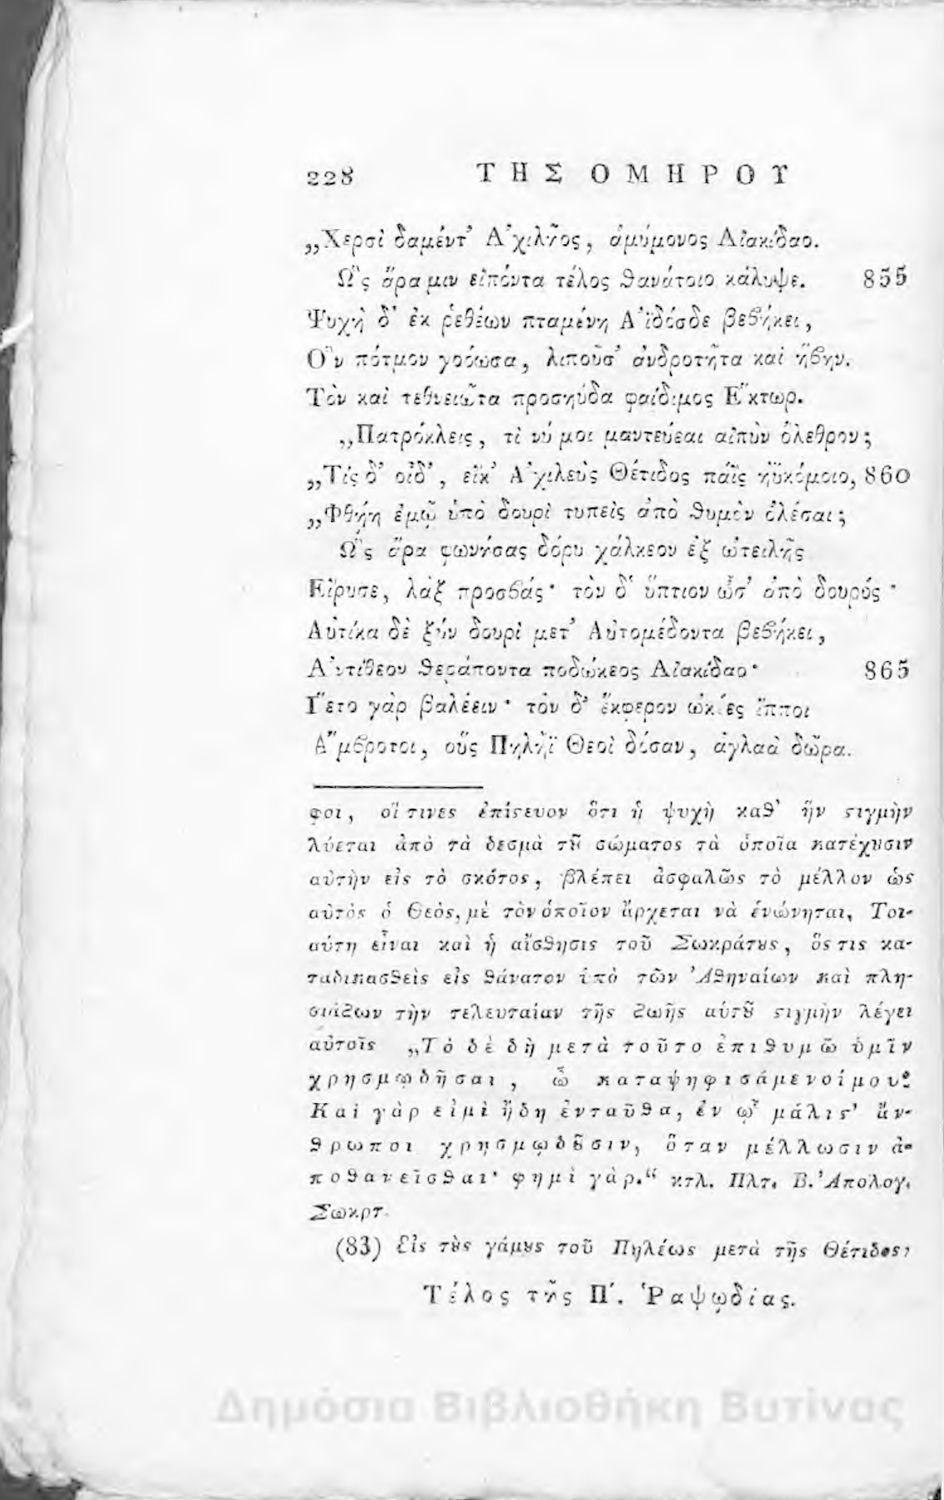 228 ΤΗΣ ΟΜΗΡΟΥ
„Χερσὶ δαμέντ᾽ Ἀχιλῆος, ἀμύμονος Αἰακίδαο.
Ὣς ἄρα μιν εἰπόντα τέλος θανάτοιο κάλυψε. 855
Ψυχὴ δ᾽ ἐκ ῥεθέων πταμένη Ἀϊδόσδε βεβήκει,
Ὃν πότμον γοόωσα, λιποῦσ᾽ ἀνδροτῆτα καὶ ἥβην.
Τὸν καὶ τεθνειῶτα προσηύδα φαίδιμος Ἕκτωρ.
„Πατρόκλεις, τί νύ μοι μαντεύεαι αἰπὺν ὄλεθρον;
„Τίς δ᾽ οἶδ᾽, εἴκ᾽ Ἀχιλεὺς Θέτιδος πάϊς ἠϋκόμοιο, 860
„Φθήῃ ἐμῷ ὑπὸ δουρὶ τυπεὶς ἀπὸ θυμὸν ὀλέσαι;
Ὣς ἄρα φωνήσας δόρυ χάλκεον ἐξ ὠτειλῆς
Εἴρυσε, λὰξ προσβάς· τὸν δ᾽ ὕπτιον ὦσ᾽ ἀπὸ δουρός·
Αὐτίκα δὲ ξὺν δουρὶ μετ᾽ Αὐτομέδοντα βεβήκει,
Ἀντίθεον θεράποντα ποδώκεος Αἰακίδαο· 865
Ἵετο γὰρ βαλέειν· τὸν δ᾽ ἔκφερον ὠκέες ἵπποι
Ἄμβροτοι, οὓς Πηλῆϊ Θεοὶ δόσαν, ἀγλαὰ δῶρα.
φοι, οἵ τινες ἐπίϛευον ὅτι ἡ ψυχὴ καθ᾽ ἣν ϛιγμὴν
λύεται ἀπὸ τὰ δεσμὰ τȣ͂ σώματος τὰ ὁποῖα κατέχȣσιν
αὐτὴν εἰς τὸ σκότος, βλέπει ἀσφαλῶς τὸ μέλλον ὡς
αὐτὸς ὁ Θεὸς, μὲ τὸν ὁποῖον ἄρχεται νὰ ἑνώνηται, Τοι-
αύτη εἶναι καὶ ἡ αἴσθησις τοῦ Σωκράτȣς, ὅς τις κα-
ταδικασθεὶς εἰς θάνατον ὑπὸ τῶν Ἀθηναίων καὶ πλη-
σιάζων τὴν τελευταίαν τῆς ζωῆς αὑτȣ͂ ϛιγμὴν λέγει
αὐτοῖς „Τὸ δὲ δὴ μετὰ τοῦτο ἐπιθυμῶ ὑμῖν
χρησμῳδῆσαι, ὦ καταψηφισάμενοί μου!
Καὶ γὰρ εἰμὶ ἤδη ἐνταῦθα, ἐν ᾧ μάλιϛ᾽ ἄν-
θρωποι χρησμῳδȣ͂σιν, ὅταν μέλλωσιν ἀ-
ποθανεῖσθαι· φημὶ γὰρ.“ κτλ. Πλτ. Β. Ἀπολογ.
Σωκρτ.
(83) Εἰς τȣ̀ς γάμȣς τοῦ Πηλέως μετὰ τῆς Θέτιδος;
Τέλος τῆς Π΄. Ῥαψῳδίας.
Δημόσια Βιβλιοθήκη Βυτίνας